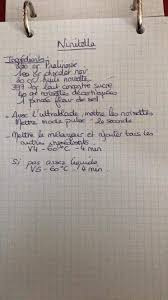 Ninutella
Ingrédients:
200 gr pralinoise
100 gr chocolat noir
20 gr huile noisette
397 gr lait concentré sucré
40 gr noisettes décortiquées
1 pincée fleur de sel
- Avec l'ultrablade, mettre les noisettes
Mettre mode pulse 10 secondes
- Mettre le mélangeur et ajouter tous les
autres ingrédients
V4 - 60°C - 4 min
Si pas assez liquide
V5 - 60°C - 4 min